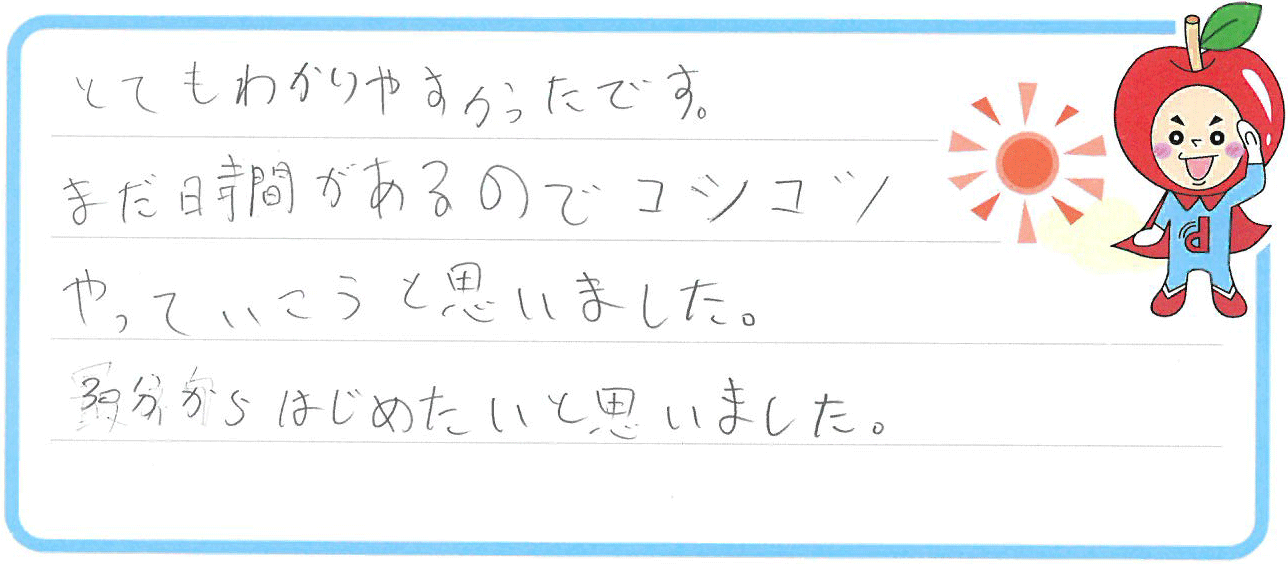 とてもわかりやすかったです。
まだ時間があるのでコツコツ
やっていこうと思いました。
3分からはじめたいと思いました。